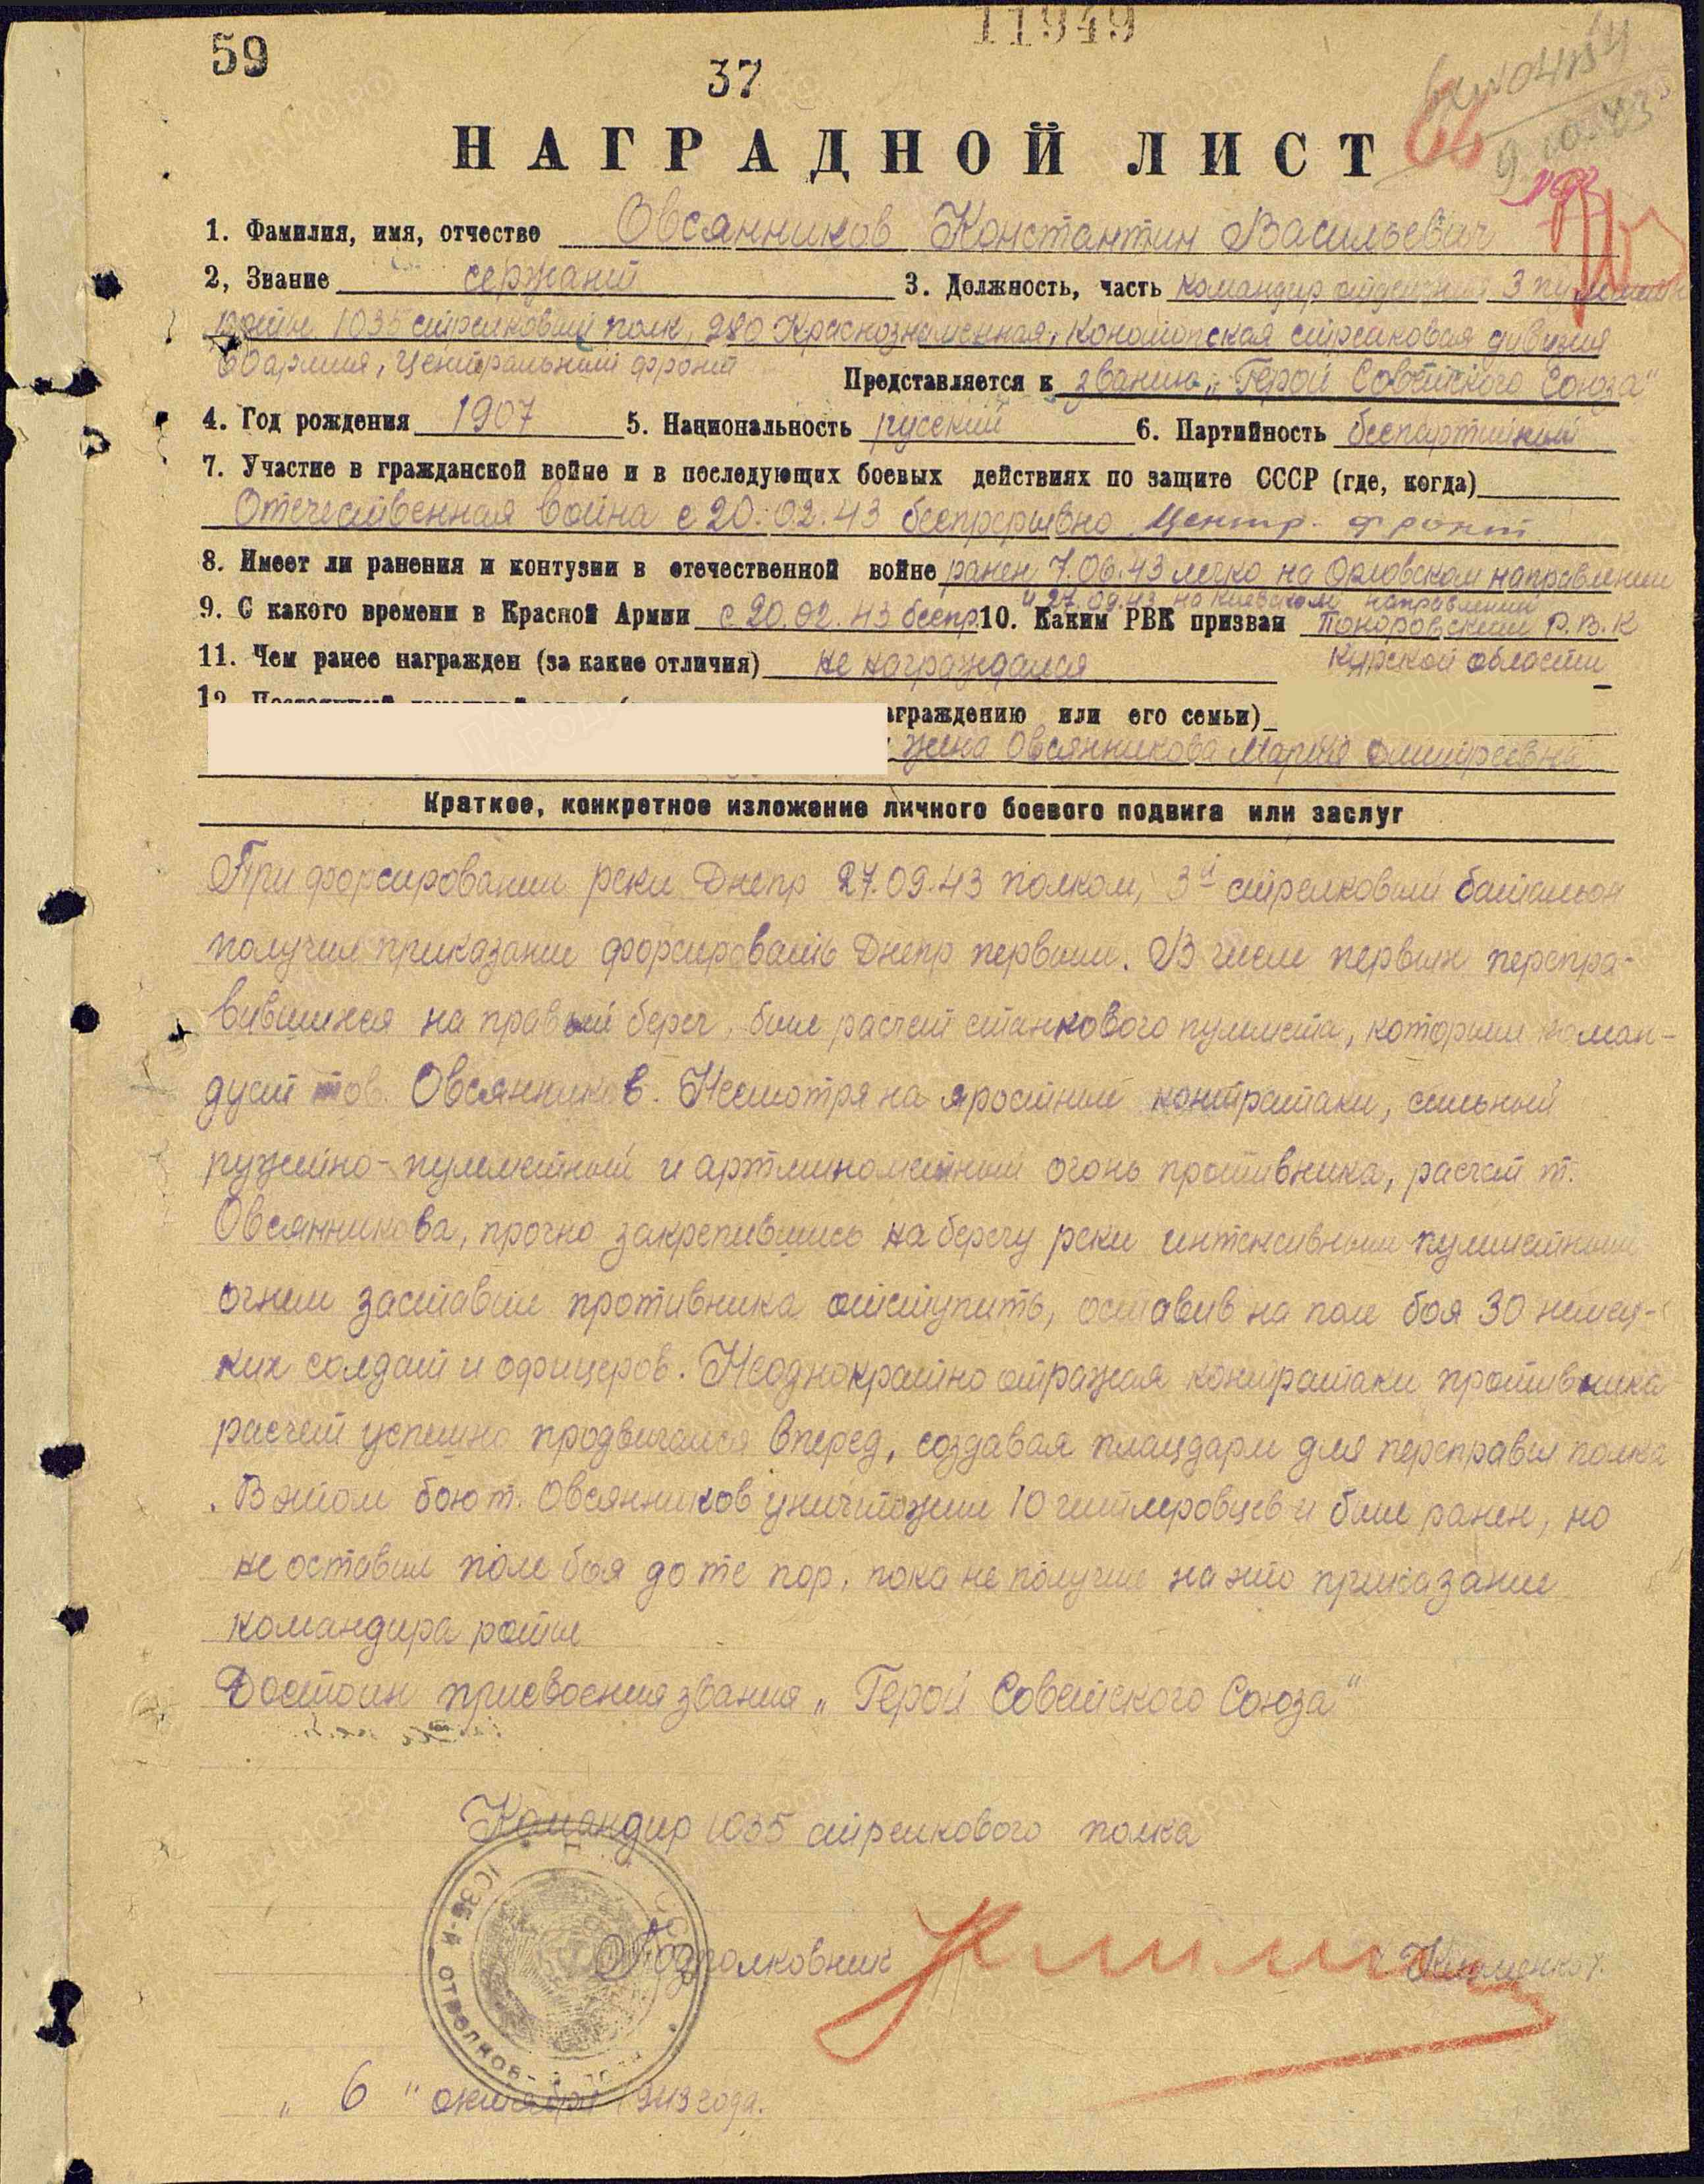 11949
59
37
НАГРАДНОЙ ЛИСТ
66
9.10.43
1. Фамилия, имя, отчество Овсянников Константин Васильевич
2, Звание сержант 3. Должность, часть командир отделения 3 пулеметн
роты 1035 стрелковый полк, 280 Краснознаменная, Конотопская стрелковая дивизия
60 армия, Центральный фронт
Представляется к званию „Герой Советского Союза"
4. Год рождения 1907 5. Национальность русский 6. Партийность беспартийный
7. Участие в гражданской войне и в последующих боевых действиях по защите СССР (где, когда)
Отечественная война с 20.02.43 беспрерывно Центр. фронт
8. Имеет ли ранения и контузии в отечественной войне ранен 7.06.43 легко на Орловском направлении
и 27.09.43 на Киевском направлении
9. С какого времени в Красной Армии с 20.02.43 беспр. 10. Каким РВК призван Поныровский Р.В.К
Курской области
11. Чем ранее награжден (за какие отличия) не награждался
12
аграждению или его семьи)
жена Овсянникова Мария Дмитреевна
Краткое, конкретное изложение личного боевого подвига или заслуг
При форсировании реки Днепр 27.09.43 полком, 3й стрелковый батальон
получил приказание форсировать Днепр первым. В числе первых перепра-
вившихся на правый берег, был расчет станкового пулемета, которым коман-
дует тов. Овсянников. Несмотря на яростные контратаки, сильный
ружейно-пулеметный и артминометный огонь противника, расчет т.
Овсянникова, прочно закрепившись на берегу реки интенсивным пулеметным
огнем заставил противника отступить, оставив на поле боя 30 немец-
ких солдат и офицеров. Неоднократно отражая контратаки противника
расчет успешно продвигался вперед, создавая плацдарм для переправы полка
. В этом бою т. Овсянников уничтожил 10 гитлеровцев и был ранен, но
не оставил поле боя до те пор, пока не получил на это приказание
командира роты
Достоин присвоения звания „Герой Советского Союза"
Командир 1035 стрелкового полка
1035-й стрелков
Подполковник Клименко
„ 6 " октября 1943 года.